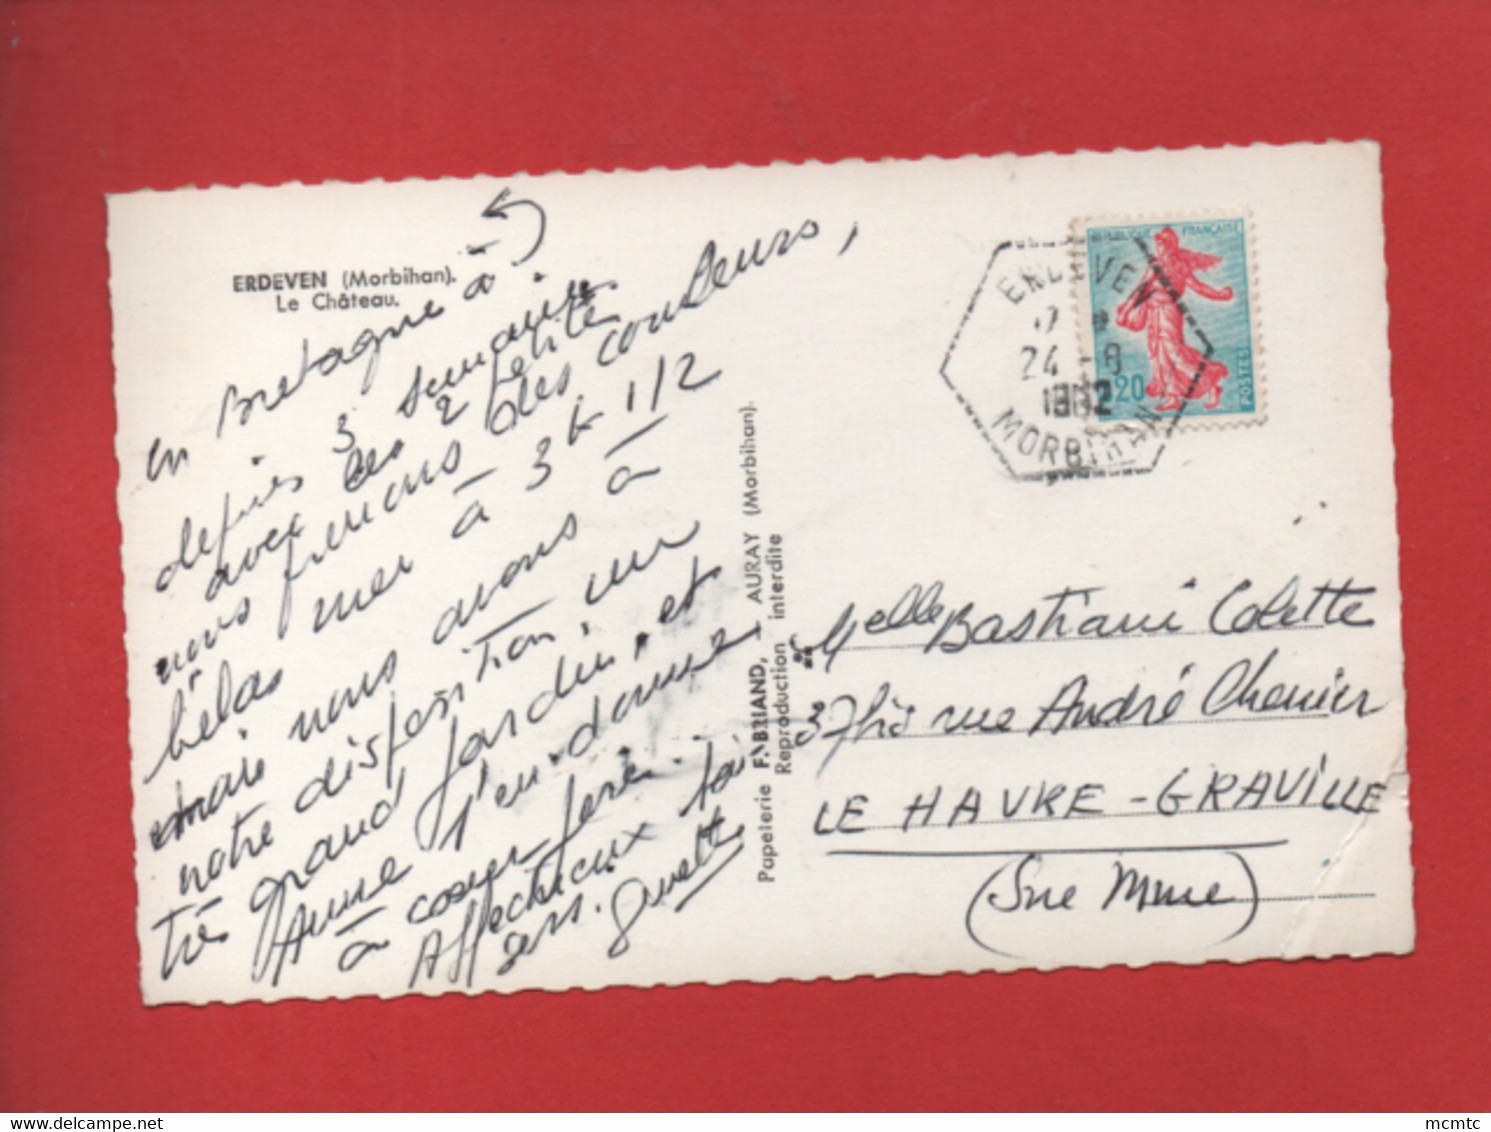 ERDEVEN (Morbihan).
Le Château.
en Bretagne à
depuis 3 semaines
avec les 2 petites
nous prenons des couleurs,
hélas mer à 3 k 1/2
mais nous avons à
notre disposition, un
très grand jardin, et
Anne s'en donne
à coeur
Affectueux
Ginette
Papeterie FABRIAND, — AURAY (Morbihan).
Reproduction interdite
REPUBLIQUE FRANÇAISE
0,20
POSTES
ERDEVEN
17 *
24 -8
1962
MORBIHAN
Melle Bastiani Colette
37bis rue André Chenier
LE HAVRE-GRAVILLE
(Sne Mme)
delcampe.net
mcmtc